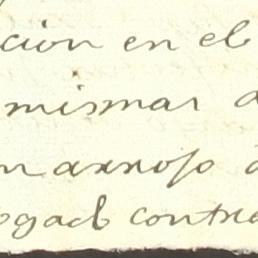 cion en el
mismas a
n arrojo d
ogado contra